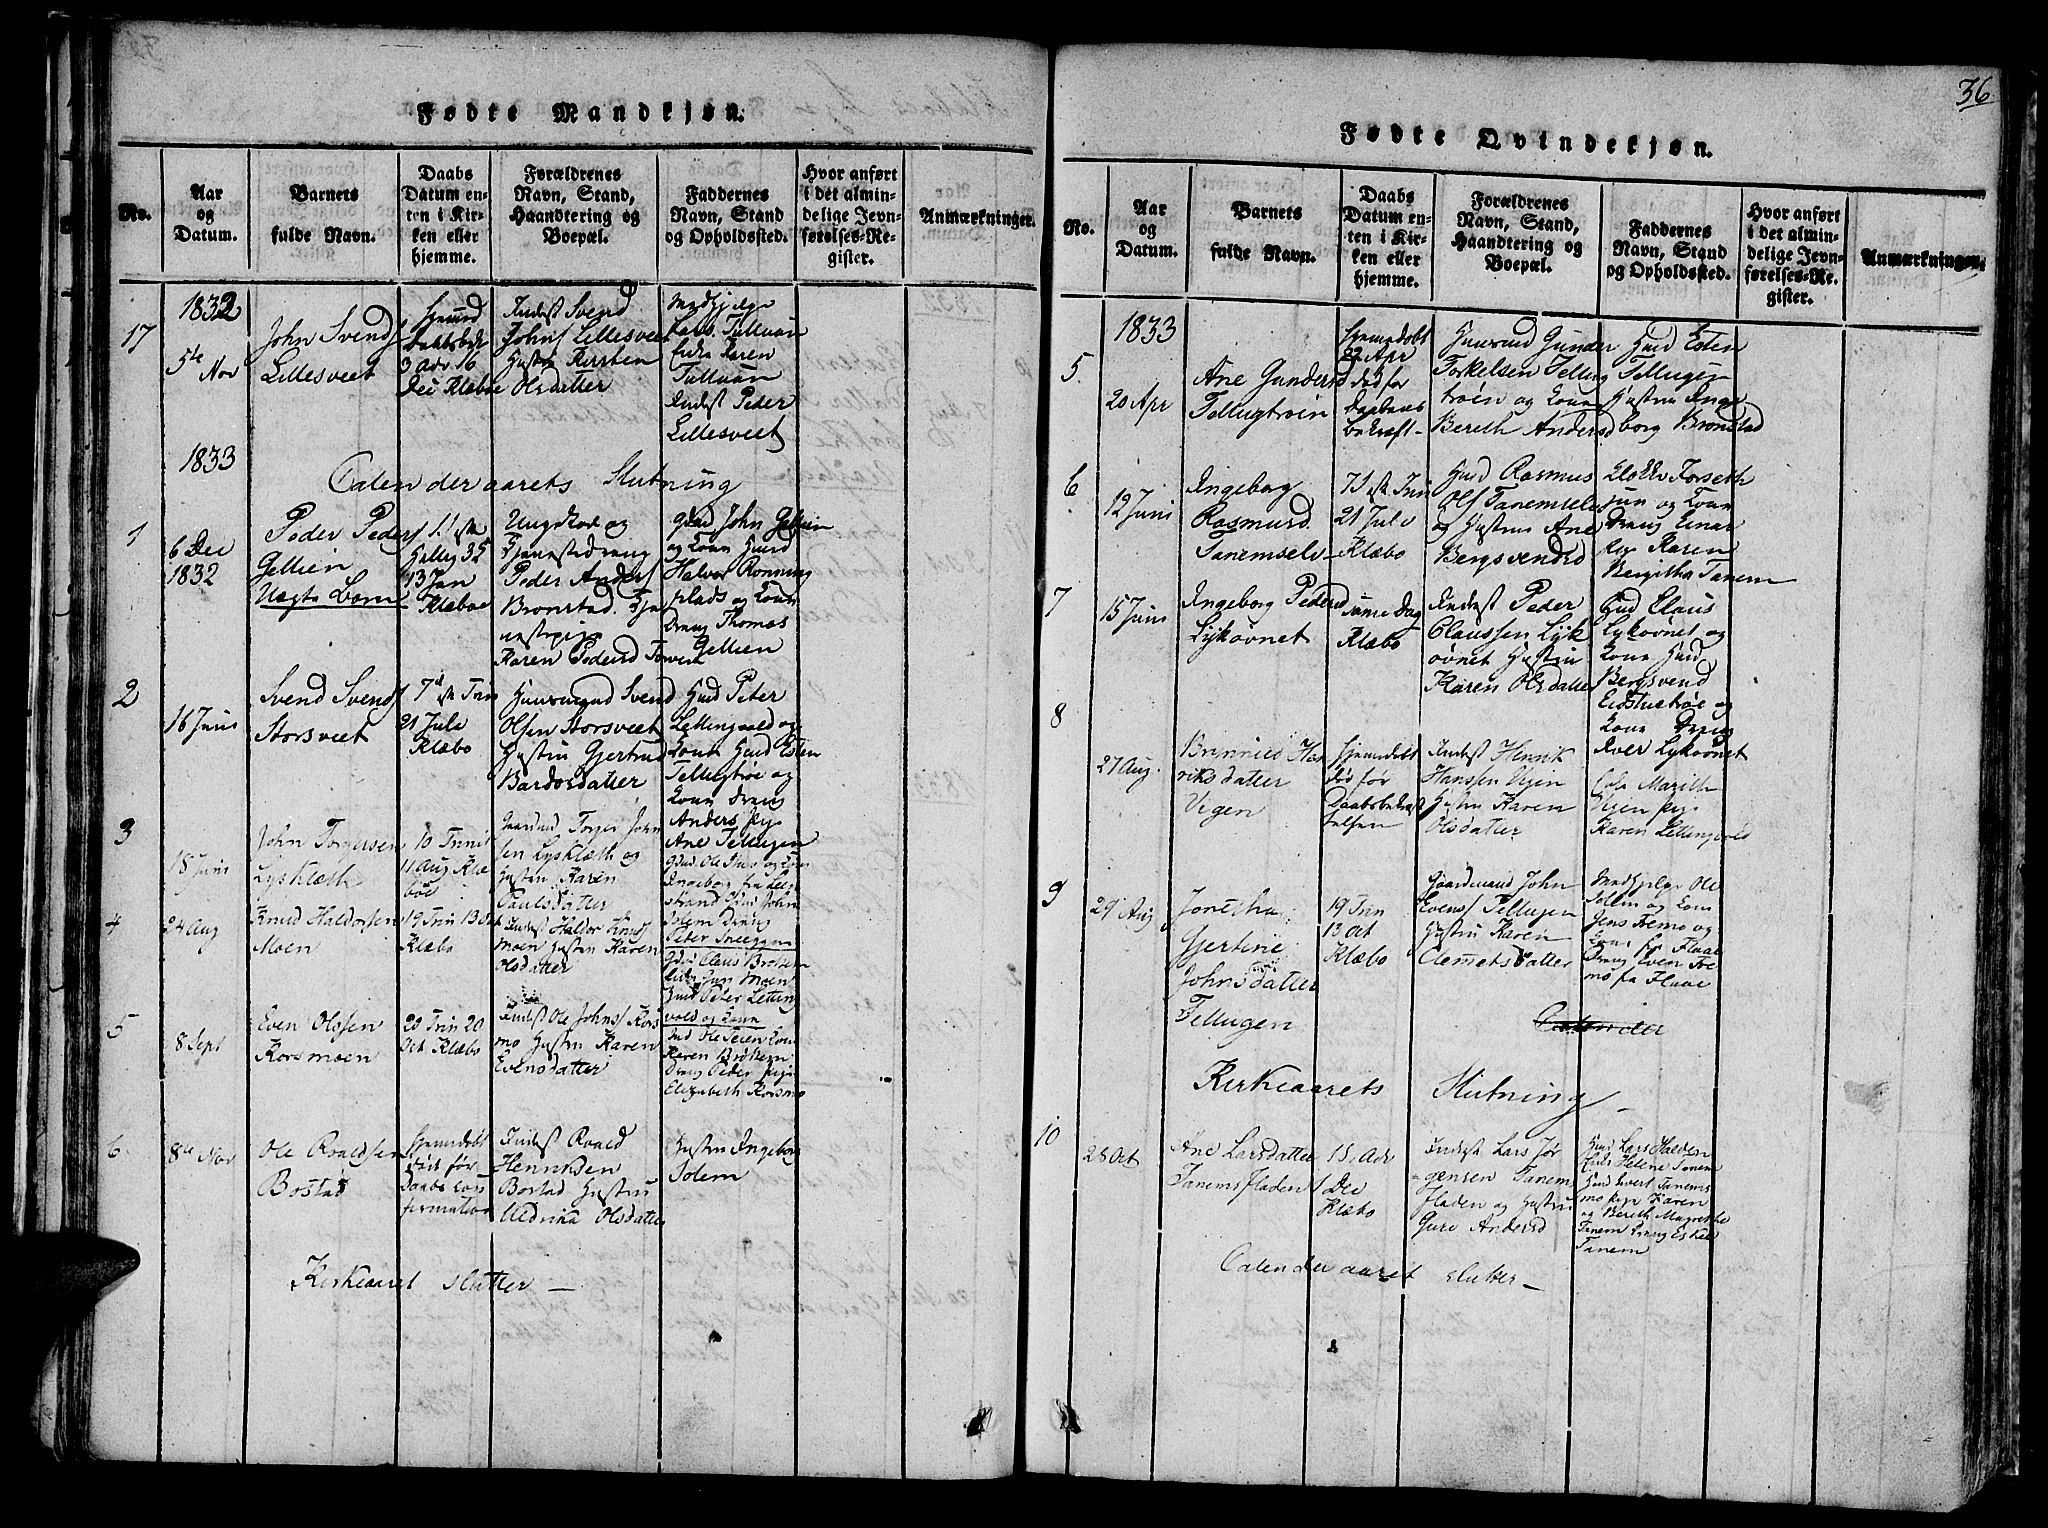 36
Fødte Mandkjøn.
No.
Aar
og
Datum.
Barnets
fulde Navn.
Daabs
Datum en-
ten i Kir-
ken eller
hjemme.
Forældrenes
Navn, Stand,
Haandtering og
Boepæl.
Faddernes
Navn, Stand
og Opholdssted.
Hvor anført
i det almin-
delige Jevn-
førelses-Re-
gister.
Anmærkninger.
17
1832
5te Nov
John Svends
Lillesveet
3 Adv 16
Dec Klæboe
Indest Svend
Johns Lillesveet
Hustru Kirsten
Olsdatter
Tulluan
Karen
Tulluan
Indest Peder
Lillesveet
1833
Calenderaarets Slutning
1
6 Dec
1832
Peder Peders
Gellien
Uægte Barn
13 Jan
Klæboe
Ungkarl og
Tjenestedreng
Peder Anders
Bronstad. Tje
nestepige
Karen Pedersd Tanem
John Gellien
og Kone Huusd
Halvor Rønning
plads og Kone
Dreng Thomas
Gellien
2
16 Juni
Svend Svends
Storsveet
7de Trin
21 Julu
Klæbo
Huusmand Svend
Olsen Storsveet
Hustru Gjertrud
Bardosdatter
Husd Peter
Lettingvold og
Kone Husd Esten
Tellugtrøe og
Kone Dreng
Anders pige
Ane Tellugen
3
18 Juni
John Torgersen
Lysklæth
10 Trinit
11 Aug Klæ
boe
Gaardmd Torger John
sen Lysklæth og
Hustru Karen
Paulsdatter
Ole Huus og Kone
Ingeborg fra Leg
strand Gmd John
Solem Dreng
Peter Sneeggen
4
24 Aug
Knud Haldorsen
Moen
19 Trin 13 Oct
Klæbo
Indest Haldor Knuds
moen Hustru Karen
Olsdatter
Claus Brøttem
Jun Moen
Husd Peter Letting
vold og Kone
5
8 Sept
Even Olssen
Korsmoen
20 Trin 20
Oct Klæbo
Indest Ole Johns Kors
mo Hustru Karen
Evensdatter
Ind Ole Teien Kone
Karen Brøttem
Dreng Peder pige
Elizabeth Korsmo
6
8te Nov
Ole Roaldsen
Bostad
Hjemmedøbt
død før
Daabs Con
firmation
Indest Roald
Henriksen
Bostad Hustru
Uldrika Olsdatter
Hustru Ingeborg
Solem
Kirkeaaret slutter —
Fødte Qvindekjøn.
No.
Aar
og
Datum.
Barnets
fulde Navn.
Daabs
Datum en-
ten i Kir-
ken eller
hjemme.
Forældrenes
Navn, Stand,
Haandtering og
Boepæl.
Faddernes
Navn, Stand
og Opholdssted.
Hvor anført
i det almin-
delige Jevn-
førelses-Re-
gister.
Anmærkninger.
5
1833
20 Apr
Ane Gundersd
Tellugtrøin
Hjemmedøbt
22 Apr
død før
Daabens
bekræft-
Huusmd Gunder
Torkelsen Tellug
trøen og Kone
Bereth Andersd
Husd Esten
Tellugen
Hustru Inge
borg Bronstad
6
12 Juni
Ingeborg
Rasmusd.
Tanemselv
21 Julu
Klæbo
Husd Rasmus
Ols Tanemselv
og Hustru Ane
Bergsvendsd
Klokker Forseth
jun og Kone
Dreng Einar
og Karen
Bergitha Tanem
7
15 Juni
Ingeborg Pedersd
Lykøvnet
samme Dag
Klæbo
Indest Peder
Claussen Lyk
øvnet Hustru
Karen Olsdatter
Husd Claus
Lykøvnet og
Kone Husd
Bergsvend
Eidstuetrøe og
Kone Dreng
Iver Lykøvnet
8
27 Aug.
Brynnild Hen
riksdatter
Vigen
Hjemmedøbt
død før
Daabsbekræft
telsen
Indest Henrik
Hanssen Vigen
Hustru Karen
Olsdatter
Marith
Vigen pige
Karen Lettingvold
9
29 Aug
Jonetha
Gjertine
Johnsdatter
Tellugen
19 Trin
13 Oct
Klæbo
Gaardmand John
Evens Tellugen
Hustru Karen
Clemetsdatter
Medhjelper Ole
Sollem og Kone
Jens Tremo og
Kone fr Flaae
Dreng Even Tre
mo fr Flaae
Calender
Kirkeaarets Slutning —
10
28 Oct
Ane Larsdatter
Tanemsfladen
15. Adv
1 Dec
Klæbo
Indest Lars Jør
gensen Tanem
fladen og Hustru
Guru Andersd
Husd Lars Halden
Helene Tanem
Husd Sivert Tanems
mo pige Karen
og Bereth Magrethe
Tanem Dreng Eskel
Tanem
Calenderaaret slutter —